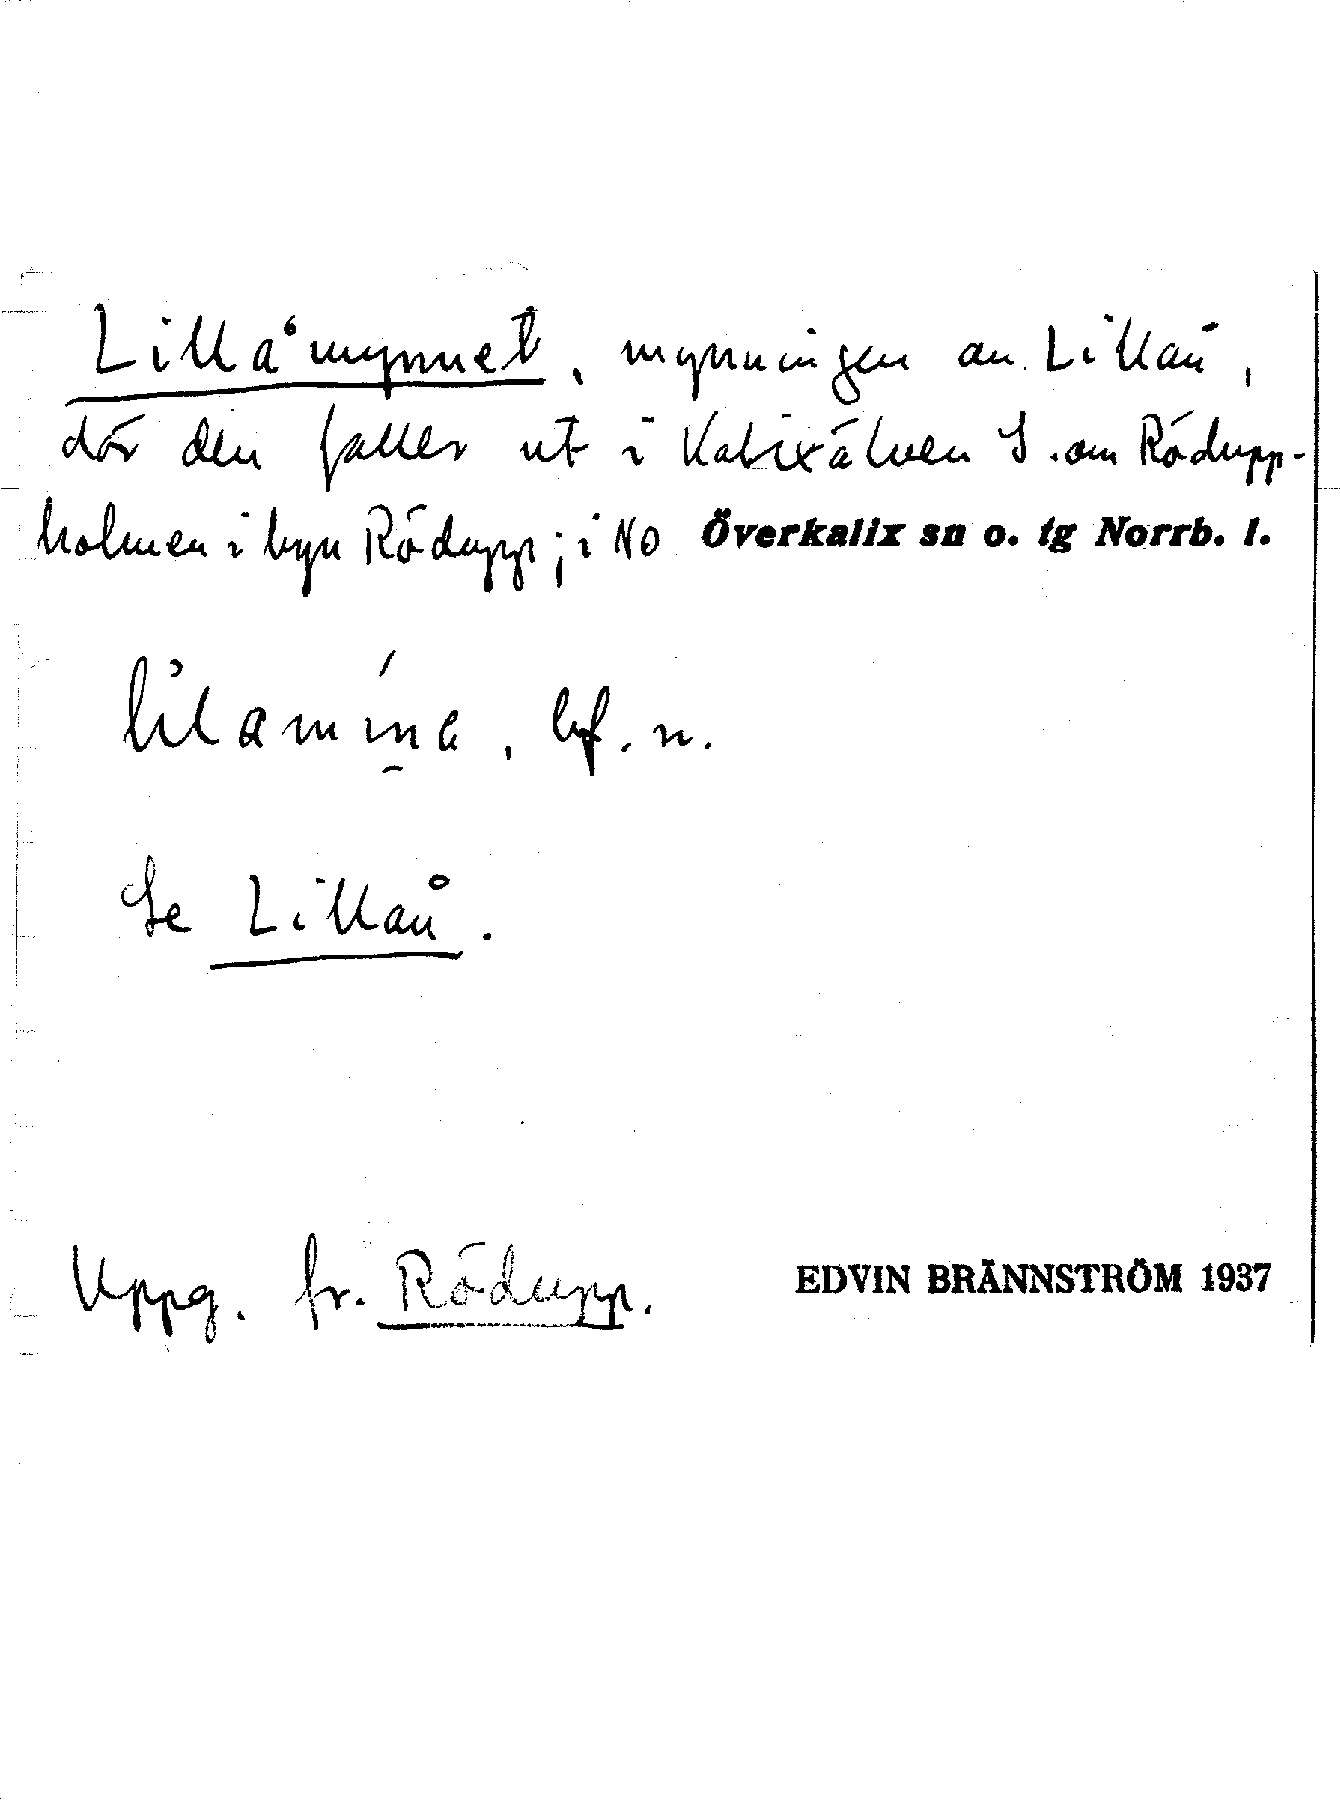 Lillåmynnet, mynningen av Lillån,
där den faller ut i Kalixälven S. om Rödupp-
holmen i byn Rödupp; i NO Överkalix sn o. tg Norrb. l.
bf. n.
Se Lillån.
Uppg. fr. Rödupp. EDVIN BRÄNNSTRÖM 1937